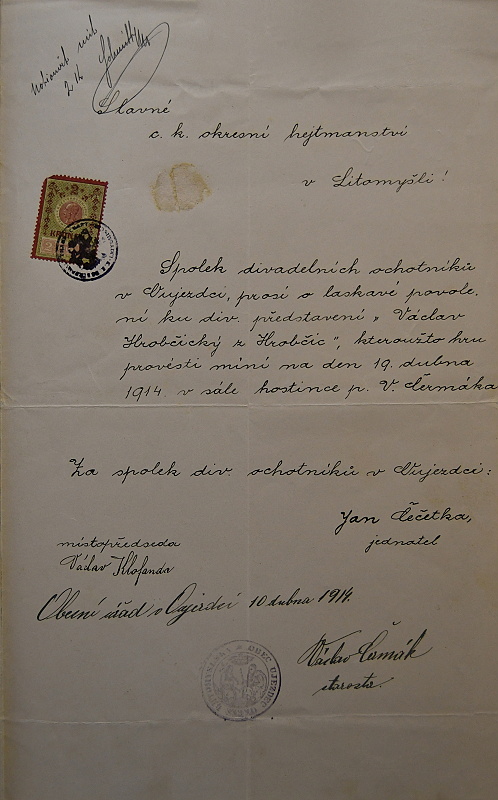 2 K
Slavné
c. k. okresní hejtmanství
v Litomyšli!
2
Spolek divadelních ochotníků
v Vujezdci, prosí o laskavé povole-
ní ku div. představení „Václav
Hrobčický z Hrobčic", kteroužto hru
provésti míní na den 19. dubna
1914 v sále hostince p. V. Čermáka
Za spolek div. ochotníků v Vujezdci:
Jan Čečetka,
jednatel
místopředseda
Václav Klofanda
Obecní úřad v Oujezdci 10 dubna 1914.
OBEC UJEZDEC
Václav Čermák
starosta.